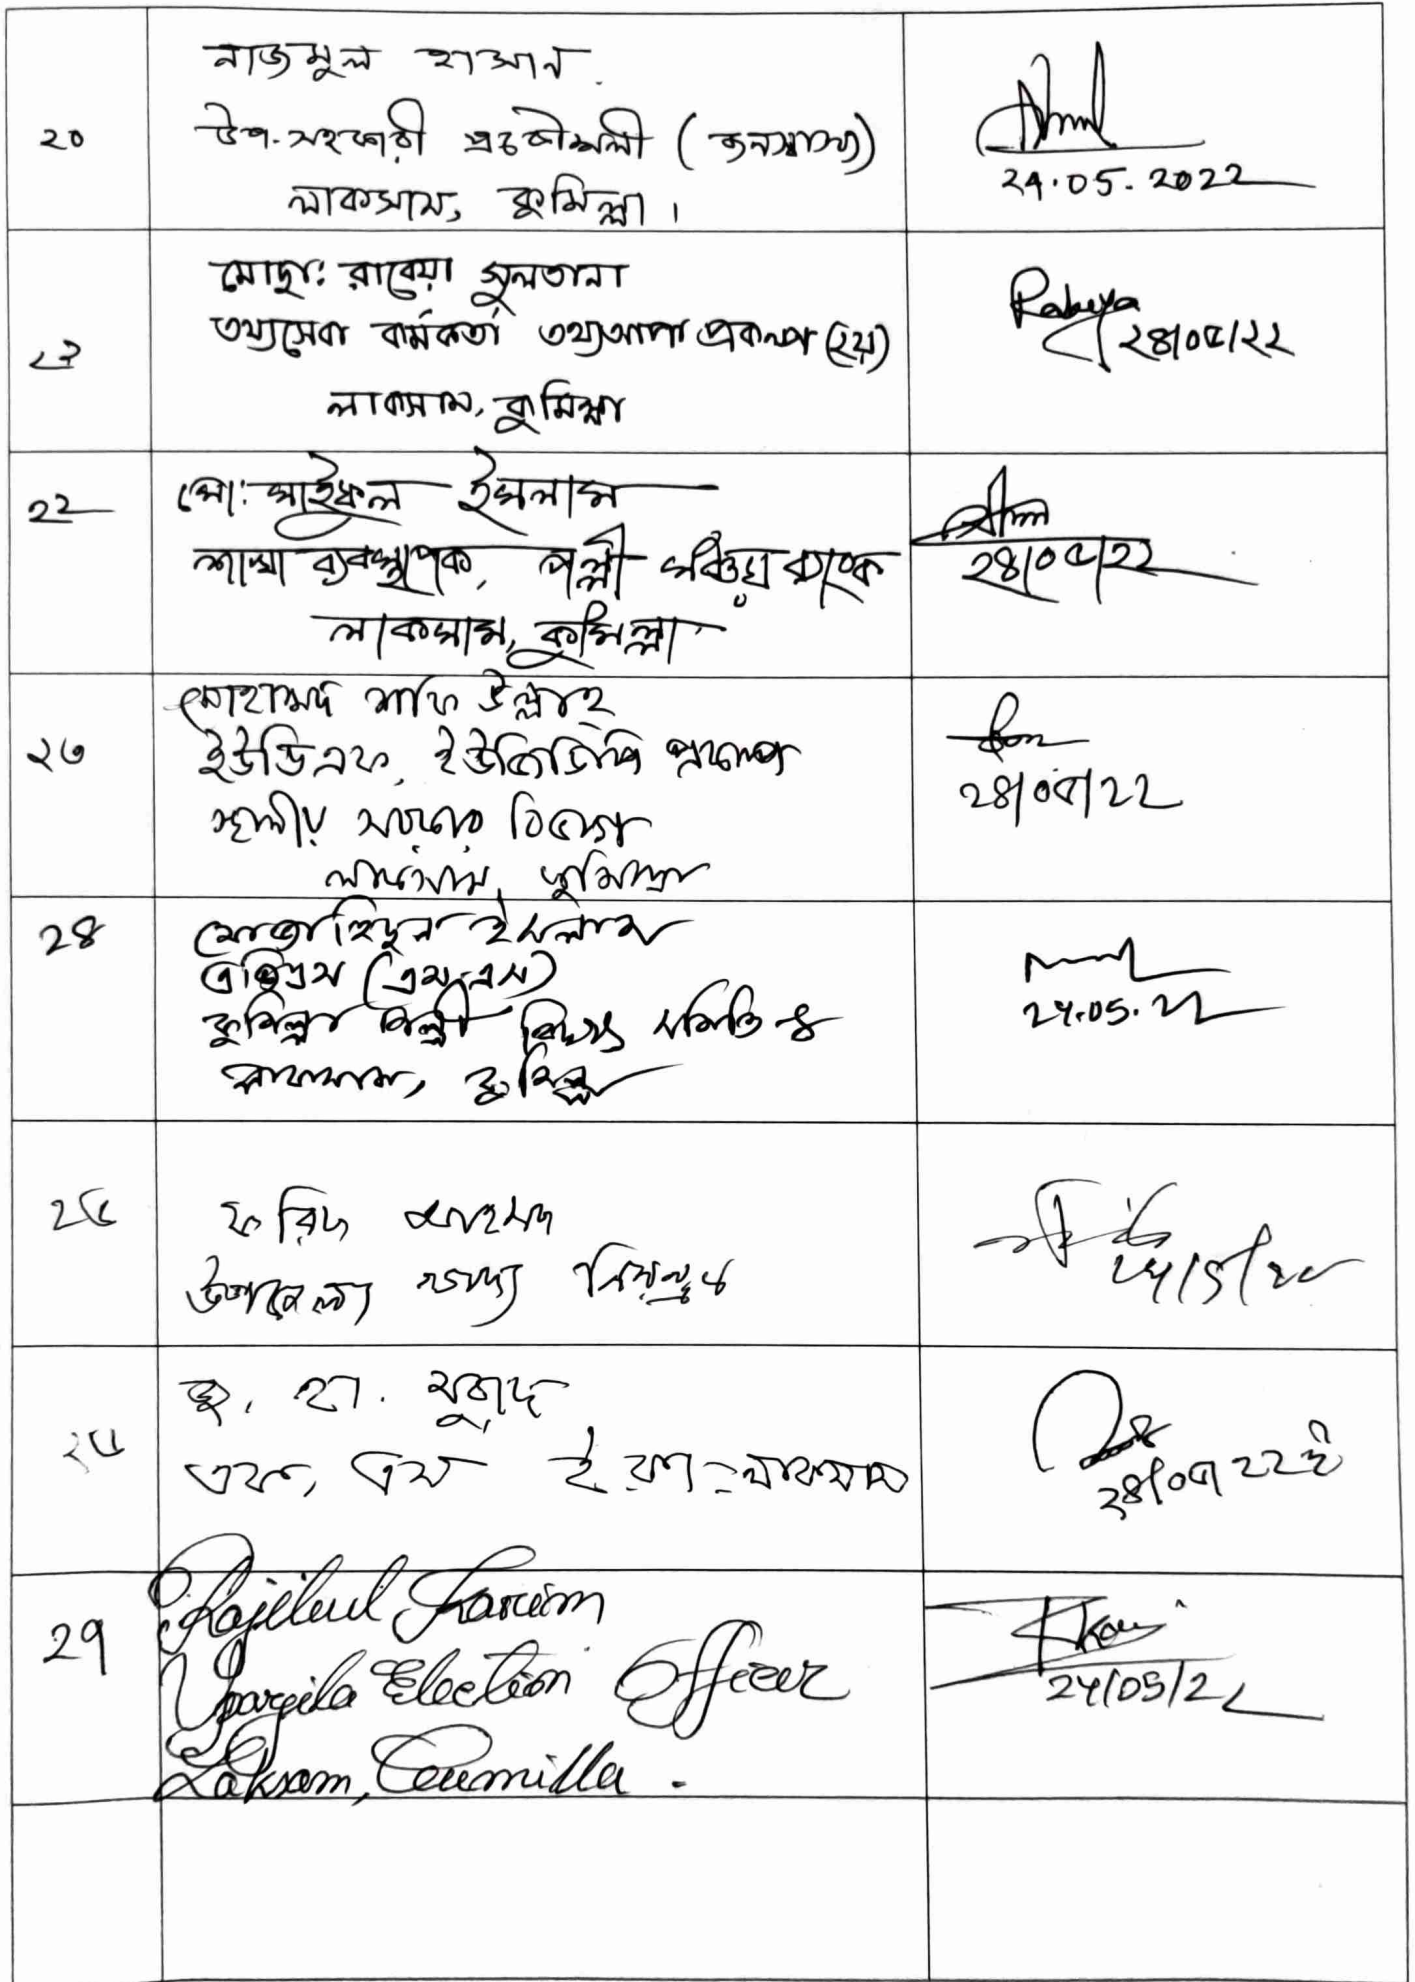 ২০
নাজমুল হাসান
উপ-সহকারী প্রকৌশলী (জনস্বাস্থ্য)
লাকসাম, কুমিল্লা।
24.05.2022
২১
মোছা: রাবেয়া সুলতানা
তথ্যসেবা কর্মকর্তা তথ্যআপা প্রকল্প (২য়)
লাকসাম, কুমিল্লা
Rabeya
২৪/০৫/২২
২২
মো: সাইফুল ইসলাম
শাখা ব্যবস্থাপক, পল্লী সঞ্চয় ব্যাংক
লাকসাম, কুমিল্লা
২৪/০৫/২২
২৩
মোহাম্মদ শফি উল্লাহ
ইউডিএফ, ইউজিডিপি প্রকল্প
স্থানীয় সরকার বিভাগ
লাকসাম, কুমিল্লা
২৪/০৫/২২
২৪
ইসলাম
(এম.এস)
কুমিল্লা পল্লী বিদ্যুৎ সমিতি-৪
লাকসাম, কুমিল্লা
24.05.22
২৫
ফরিদ আহমদ
উপজেলা খাদ্য নিয়ন্ত্রক
24/5/22
২৬
২৪/০৫/২২ ইং
২৭
Karim
Upazila Election Officer
Laksam, Cumilla.
24/05/22